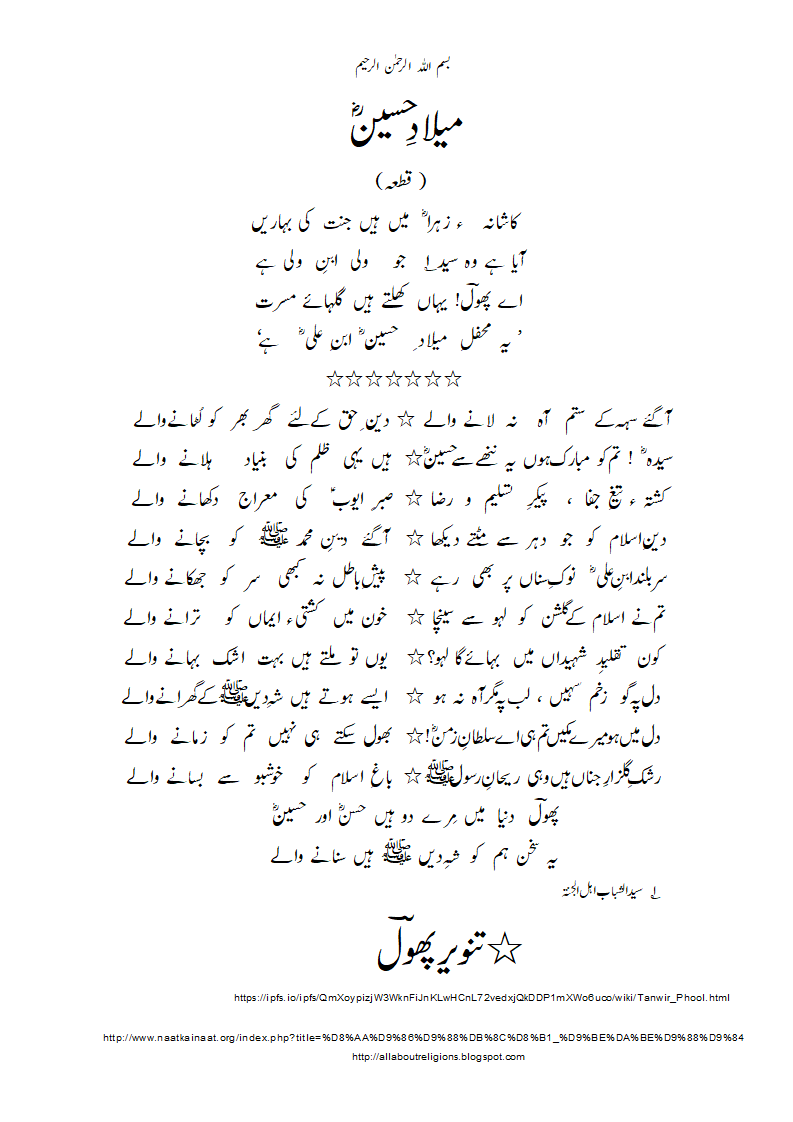 بسم اللہ الرحمٰن الرحیم
میلادِ حسینؓ
( قطعہ )
کاشانہ ء زہراؓ میں ہیں جنت کی بہاریں
آیا ہے وہ سید ۱؎ جو ولی ابنِ ولی ہے
اے پھولؔ! یہاں کھلتے ہیں گلہائے مسرت
’ یہ محفلِ میلاد ِ حسینؓ ابنِ علیؓ ہے‘
☆☆☆☆☆☆☆
آگئے سہہ کے ستم آہ نہ لانے والے ☆ دینِ حق کے لئے گھر بھر کو لُٹانے والے
سیدہؓ ! تم کو مبارک ہوں یہ ننھے سے حسینؓ ☆ ہیں یہی ظلم کی بنیاد ہلانے والے
کشتہ ء تیغِ جفا ، پیکرِ تسلیم و رضا ☆ صبرِ ایوبؑ کی معراج دکھانے والے
دینِ اسلام کو جو دہر سے مٹتے دیکھا ☆ آگئے دینِ محمد ﷺ کو بچانے والے
سر بلند ابنِ علیؓ نوکِ سناں پر بھی رہے ☆ پیشِ باطل نہ کبھی سر کو جھکانے والے
تم نے اسلام کے گلشن کو لہو سے سینچا ☆ خون میں کشتیء ایماں کو ترانے والے
کون تقلیدِ شہیداں میں بہائے گا لہو؟ ☆ یوں تو ملتے ہیں بہت اشک بہانے والے
دل پہ گو زخم سہیں ، لب پہ مگر آہ نہ ہو ☆ ایسے ہوتے ہیں شہِ دیںﷺ کے گھرانے والے
دل میں ہو میرے مکیں تم ہی اے سلطانِ زمنؓ! ☆ بھول سکتے ہی نہیں تم کو زمانے والے
رشکِ گلزارِ جناں ہیں وہی ریحانِ رسولﷺ ☆ باغِ اسلام کو خوشبو سے بسانے والے
پھولؔ دنیا میں مِرے دو ہیں حسنؓ اور حسینؓ
یہ سخن ہم کو شہِ دیں ﷺ ہیں سنانے والے
۱؎ سید الشباب اہل الجنۃ
☆ تنویر پھولؔ
https://ipfs.io/ipfs/QmXoypizjW3WknFiJnKLwHCnL72vedxjQkDDP1mXWo6uco/wiki/Tanwir_Phool.html
http://www.naatkainaat.org/index.php?title=%D8%AA%D9%86%D9%88%DB%8C%D8%B1_%D9%BE%DA%BE%D9%88%D9%84
http://allaboutreligions.blogspot.com